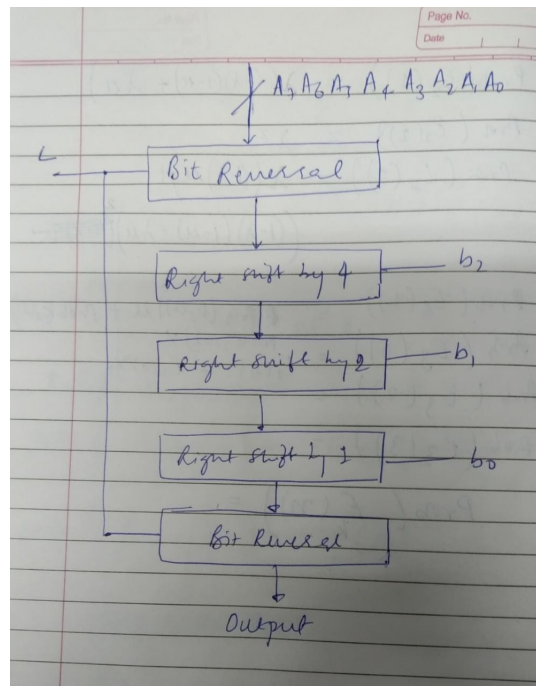 Page No.
Date
A7 A6 A5 A4 A3 A2 A1 A0
L
Bit Reversal
Right shift by 4
b2
Right shift by 2
b1
Right shift by 1
b0
Bit Reversal
Output